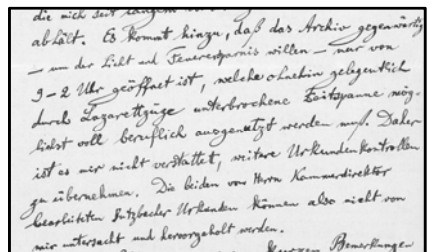 die mich seit langem
abhält. Es kommt hinzu, daß das Archiv gegenwärtig
— um der Licht und Feuerersparnis willen — nur von
9–2 Uhr geöffnet ist, welche ohnehin gelegentlich
durch Lazarettzüge unterbrochene Zeitspanne mög-
lichst voll beruflich ausgenutzt werden muß. Daher
ist es mir nicht verstattet, weitere Urkundenkontrollen
zu übernehmen. Die beiden von Herrn Kammerdirektor
bearbeiteten Butzbacher Urkunden können also nicht von
mir untersucht und hervorgeholt werden.
kurzen Bemerkungen